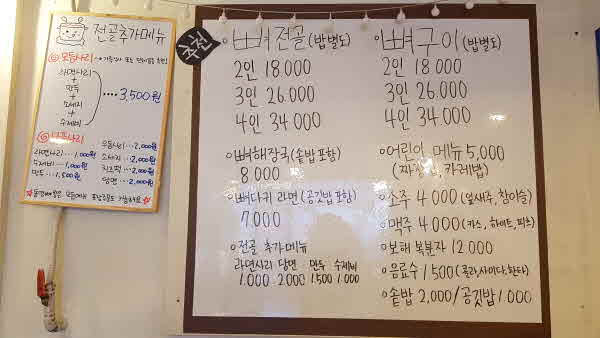 전골추가메뉴
모둠사리
라면사리
+
만두
+
소세지
+
수제비
.... 3,500원
라면사리 ... 1,000원
수제비 ... 1,000원
만두 ... 1,500원
우동사리 ... 2,000원
소세지 ... 2,000원
치즈떡 ... 2,000원
당면 ... 2,000원
추천
뼈전골 (밥별도)
2인 18000
3인 26.000
4인 34 000
뼈해장국(솥밥 포함)
8 000
뼈다귀 라면 (공깃밥 포함)
7.000
전골 추가메뉴
라면사리 당면 만두 수제비
1.000 2000 1.500 1.000
뼈구이 (밥별도)
2인 18 000
3인 26.000
4인 34 000
어린이 메뉴 5,000
(짜장밥, 카레밥)
소주 4 000 (잎새주, 참이슬)
맥주 4 000 (카스, 하이트, 피츠)
보해 복분자 12 000
음료수 1 500 (콜라,사이다,환타)
솥밥 2,000/공깃밥 1 000